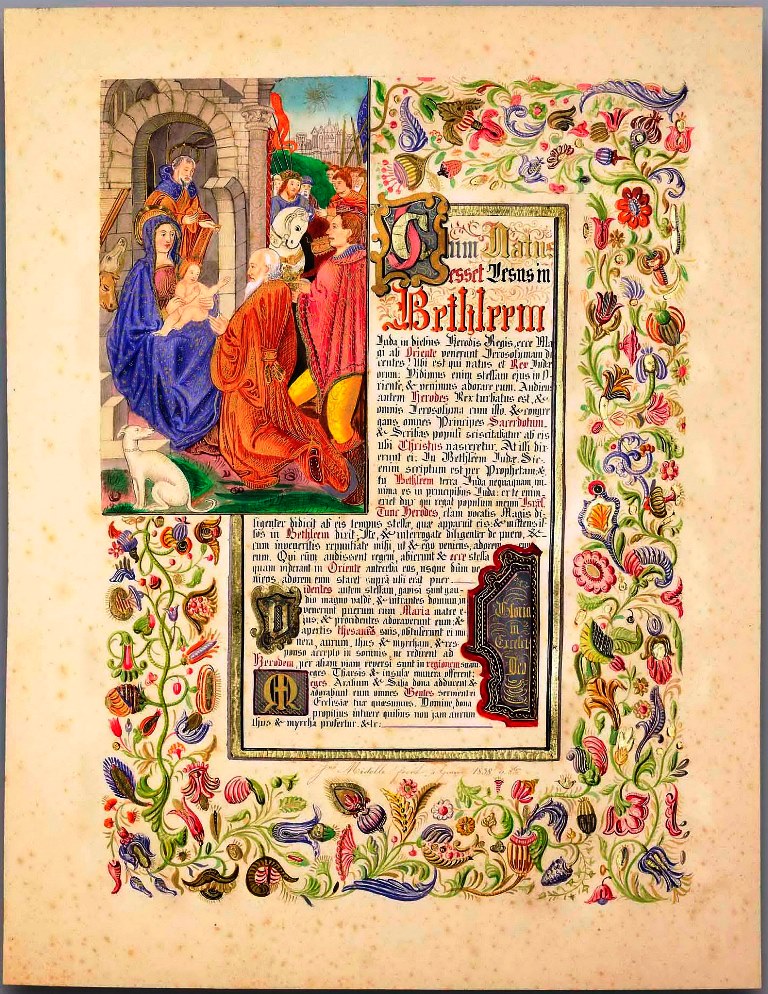 Cum Natus
esset Jesus in
Bethleem
Juda in diebus Herodis Regis, ecce Ma
gi ab Oriente venerunt Jerosolymam di
centes: Ubi est qui natus et Rex Judæ
orum: Vidimus enim stellam ejus in O
riente, & venimus adorare eum. Audiens
autem Herodes Rex turbatus est, &
omnis Jerosolyma cum illo, & congre
gans omnes Principes Sacerdotum,
& Scribas populi sciscitabatur ab eis
ubi Christus nasceretur. At illi dix
erunt ei: In Bethleem Judæ. Sic
enim scriptum est per Prophetam: &
tu Bethleem terra Juda nequaquam mi
nima es in principibus Juda: ex te enim
exiet dux qui regat populum meum Israël.
Tunc Herodes, clam vocatis Magis di
ligenter didicit ab eis tempus stellæ, quæ apparuit eis: & mittens il
los in Bethleem dixit: Ite, & interrogate diligenter de puero, &
cum inveneritis renuntiate mihi, ut & ego veniens, adorem
eum. Qui cum audissent regem, abierunt & ecce stella
quam viderant in Oriente antecedebat eos, usque dum ve
niens adorem eum staret supra ubi erat puer
Videntes autem stellam, gavisi sunt gau
dio magno valde, & intrantes domum in
venerunt puerum cum Maria matre e
jus, & procidentes adoraverunt eum &
apertis thesauris suis, obtulerunt ei mu
nera, aurum, thus & myrrham, & res
ponso accepto in somnis, ne redirent ad
Herodem, per aliam viam reversi sunt in regionem suam
Reges Tharsis & insulæ munera offerent:
Reges Arabum & Saba dona adducent &
adorabunt eum omnes Gentes servient ei
Ecclesiæ tuæ quæsumus, Domine, dona
propitius intuere quibus non jam aurum
thus & myrrha profertur, &c:
Gloria
in
Excelsis
Deo
Midolle 1838